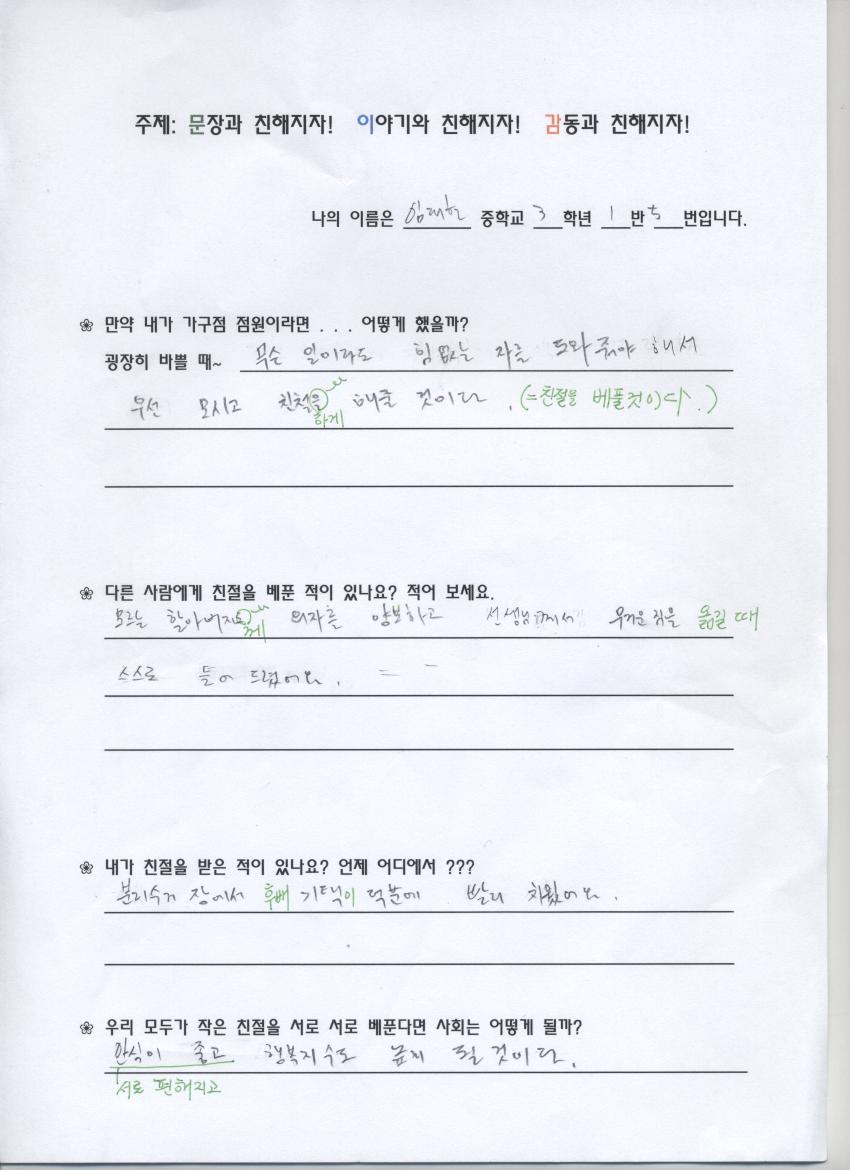 주제: 문장과 친해지자! 이야기와 친해지자! 감동과 친해지자!
나의 이름은 임대현 중학교 3 학년 1 반 5 번입니다.
❀ 만약 내가 가구점 점원이라면 . . . 어떻게 했을까?
굉장히 바쁠 때~ 무슨 일이라도 힘없는 자를 도와줘야 해서
우선 모시고 친절을 해줄 것이다. (=친절을 베풀것이다.)
하게
❀ 다른 사람에게 친절을 베푼 적이 있나요? 적어 보세요.
모르는 할아버지 께 의자를 양보하고 선생님께서 무거운 짐을 옮길 때
스스로 들어 드렸어요.
❀ 내가 친절을 받은 적이 있나요? 언제 어디에서 ???
분리수거 장에서 후배 기택이 덕분에 빨리 치웠어요.
❀ 우리 모두가 작은 친절을 서로 서로 베푼다면 사회는 어떻게 될까?
안식이 좋고 행복지수도 높게 될 것이다.
서로 편해지고